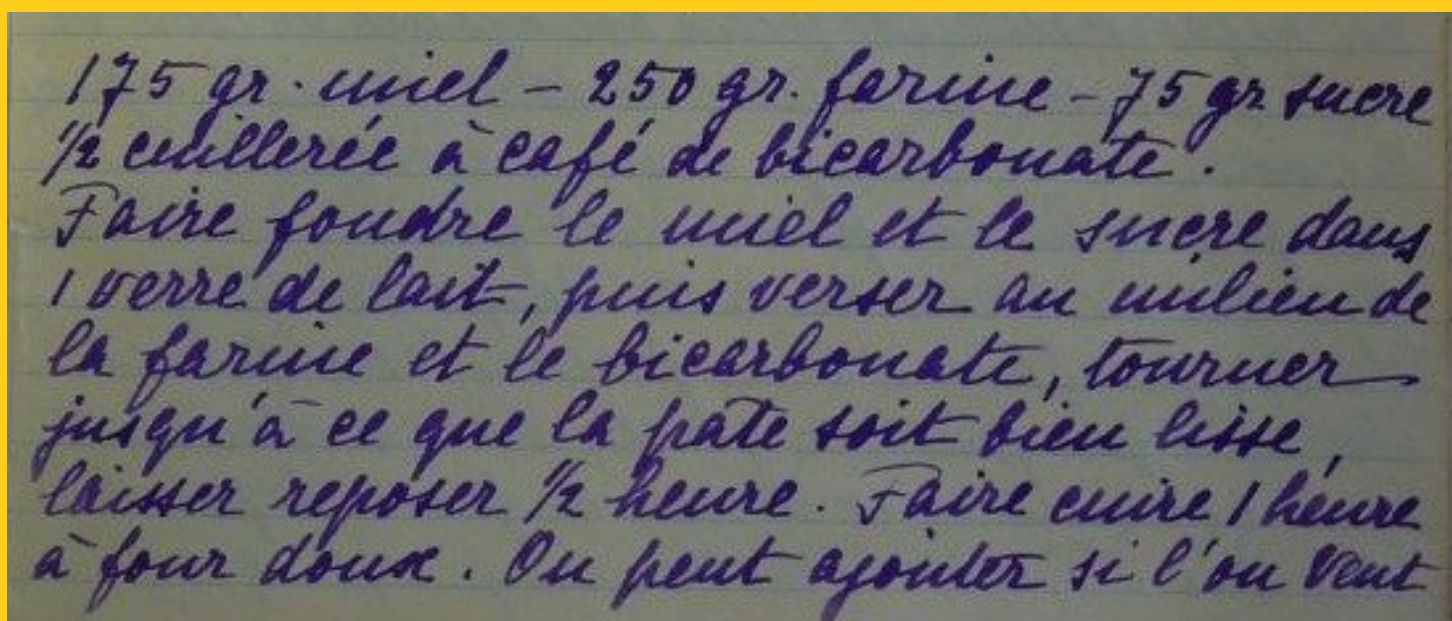 175 gr. miel - 250 gr. farine - 75 gr sucre
1/2 cuillerée à café de bicarbonate.
Faire fondre le miel et le sucre dans
1 verre de lait, puis verser au milieu de
la farine et le bicarbonate, tourner
jusqu'à ce que la pâte soit bien lisse,
laisser reposer 1/2 heure. Faire cuire 1 heure
à four doux. On peut ajouter si l'on veut